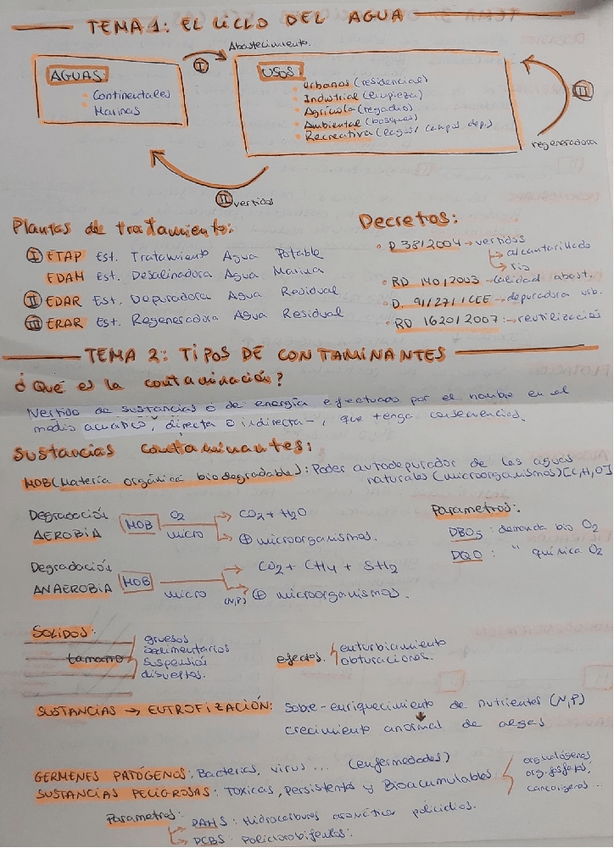 TEMA 1: EL CICLO DEL AGUA
Abastecimiento.
AGUAS:
Continentales
Marinas
I
USOS:
· Urbanos (residencial)
· Industrial (limpieza)
· Agrícola (regadío)
· Ambiental (bosques)
· Recreativa (lagos/campos dep.)
III
regeneradora
II vertidos
Plantas de tratamiento:
I ETAP Est. Tratamiento Agua Potable
EDAM Est. Desalinadora Agua Marina
II EDAR Est. Depuradora Agua Residual
III ERAR Est. Regeneradora Agua Residual
Decretos:
· D 38/2004 → vertidos
→ alcantarillado
→ río
· RD 140/2003 → calidad abast.
· D. 91/271/CEE → depuradora urb.
· RD 1620/2007: → reutilización
TEMA 2: TIPOS DE CONTAMINANTES
¿Qué es la contaminación?
Vertido de sustancias o de energía efectuados por el hombre en el
medio acuático, directa o indirecta-, que tenga consecuencias.
Sustancias contaminantes:
MOB (Materia orgánica biodegradable): Poder autodepurador de las aguas
naturales (microorganismos) [C,H,O]
Degradación
AEROBIA MOB O2 micro → CO2 + H2O
→ ⊕ microorganismos.
Parametros:
DBO5: demanda bio O2
DQO: " química O2
Degradación
ANAEROBIA MOB micro → CO2 + CH4 + SH2
(N,P) ⊕ microorganismos.
SOLIDOS:
tamaño gruesos
sedimentarios
suspensión
disueltos.
efectos: enturbiamiento
obturaciones.
SUSTANCIAS → EUTROFIZACIÓN: Sobre-enriquecimiento de nutrientes (N,P)
crecimiento anormal de algas
GERMENES PATÓGENOS: Bacterias, virus ... (enfermedades)
SUSTANCIAS PELIGROSAS: Tóxicas, Persistentes y Bioacumulables
organohalógenos
org. fosfato,
cancerígenos ...
Parametros: PAHS: Hidrocarburos
→ PCBS: